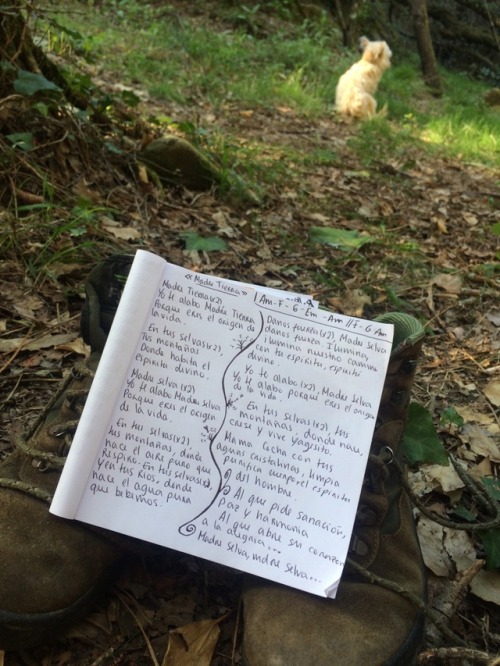 «Madre Tierra»
Am-F-G-Em-Am//F-G Am
Madre Tierra(x2),
Yo te alabo Madre Tierra,
Porque eres el origen de
la vida.
En tus selvas(x2),
Tus montañas
Donde habita el
espíritu divino.
Madre selva (x2)
Yo te alabo Madre Selva
Porque eres el origen
de la vida.
En tus selvas(x2),
tus montañas, donde
nace el aire puro que
Respiro. En tus selvas(x2)
y en tus Ríos, donde
nace el agua pura
que bebimos.
Danos fuerza(x2), Madre selva
danos fuerza. Ilumina,
ilumina, nuestro camino
con tu espíritu, espíritu
divino.
Yo te alabo(x2), Madre Selva
Yo te alabo porque eres el origen
de la vida.
En tus selvas(x2), tus
montañas, donde nace,
crece y vive Yagesito.
Mama Cocha con tus
aguas cristalinas, limpia
purifica cuerpo, el espíritu
del hombre.
Al que pide sanación,
Paz y harmonia
Al que abre su corazon
a la alegria...
Madre selva, madre selva...